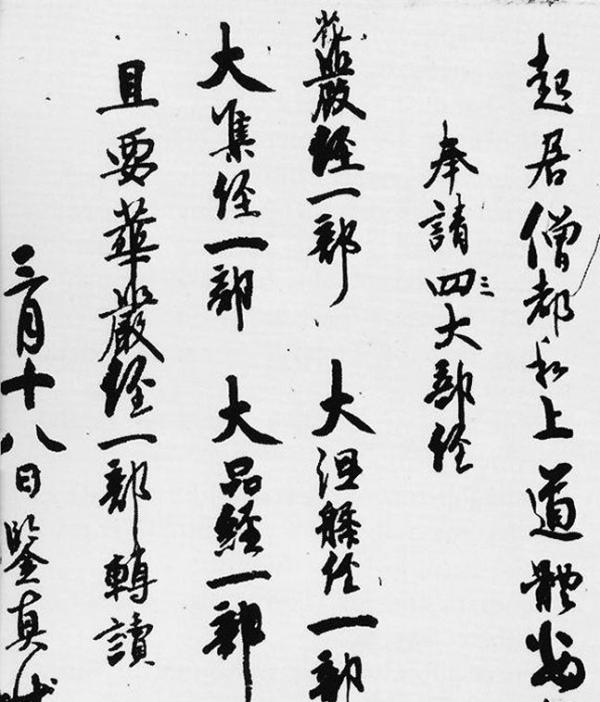 起居僧都和上道體
奉請四三大部経
花嚴経一部 大涅槃経一部
大集経一部 大品経一部
且要華嚴経一部轉讀
三月十八日鑒真状